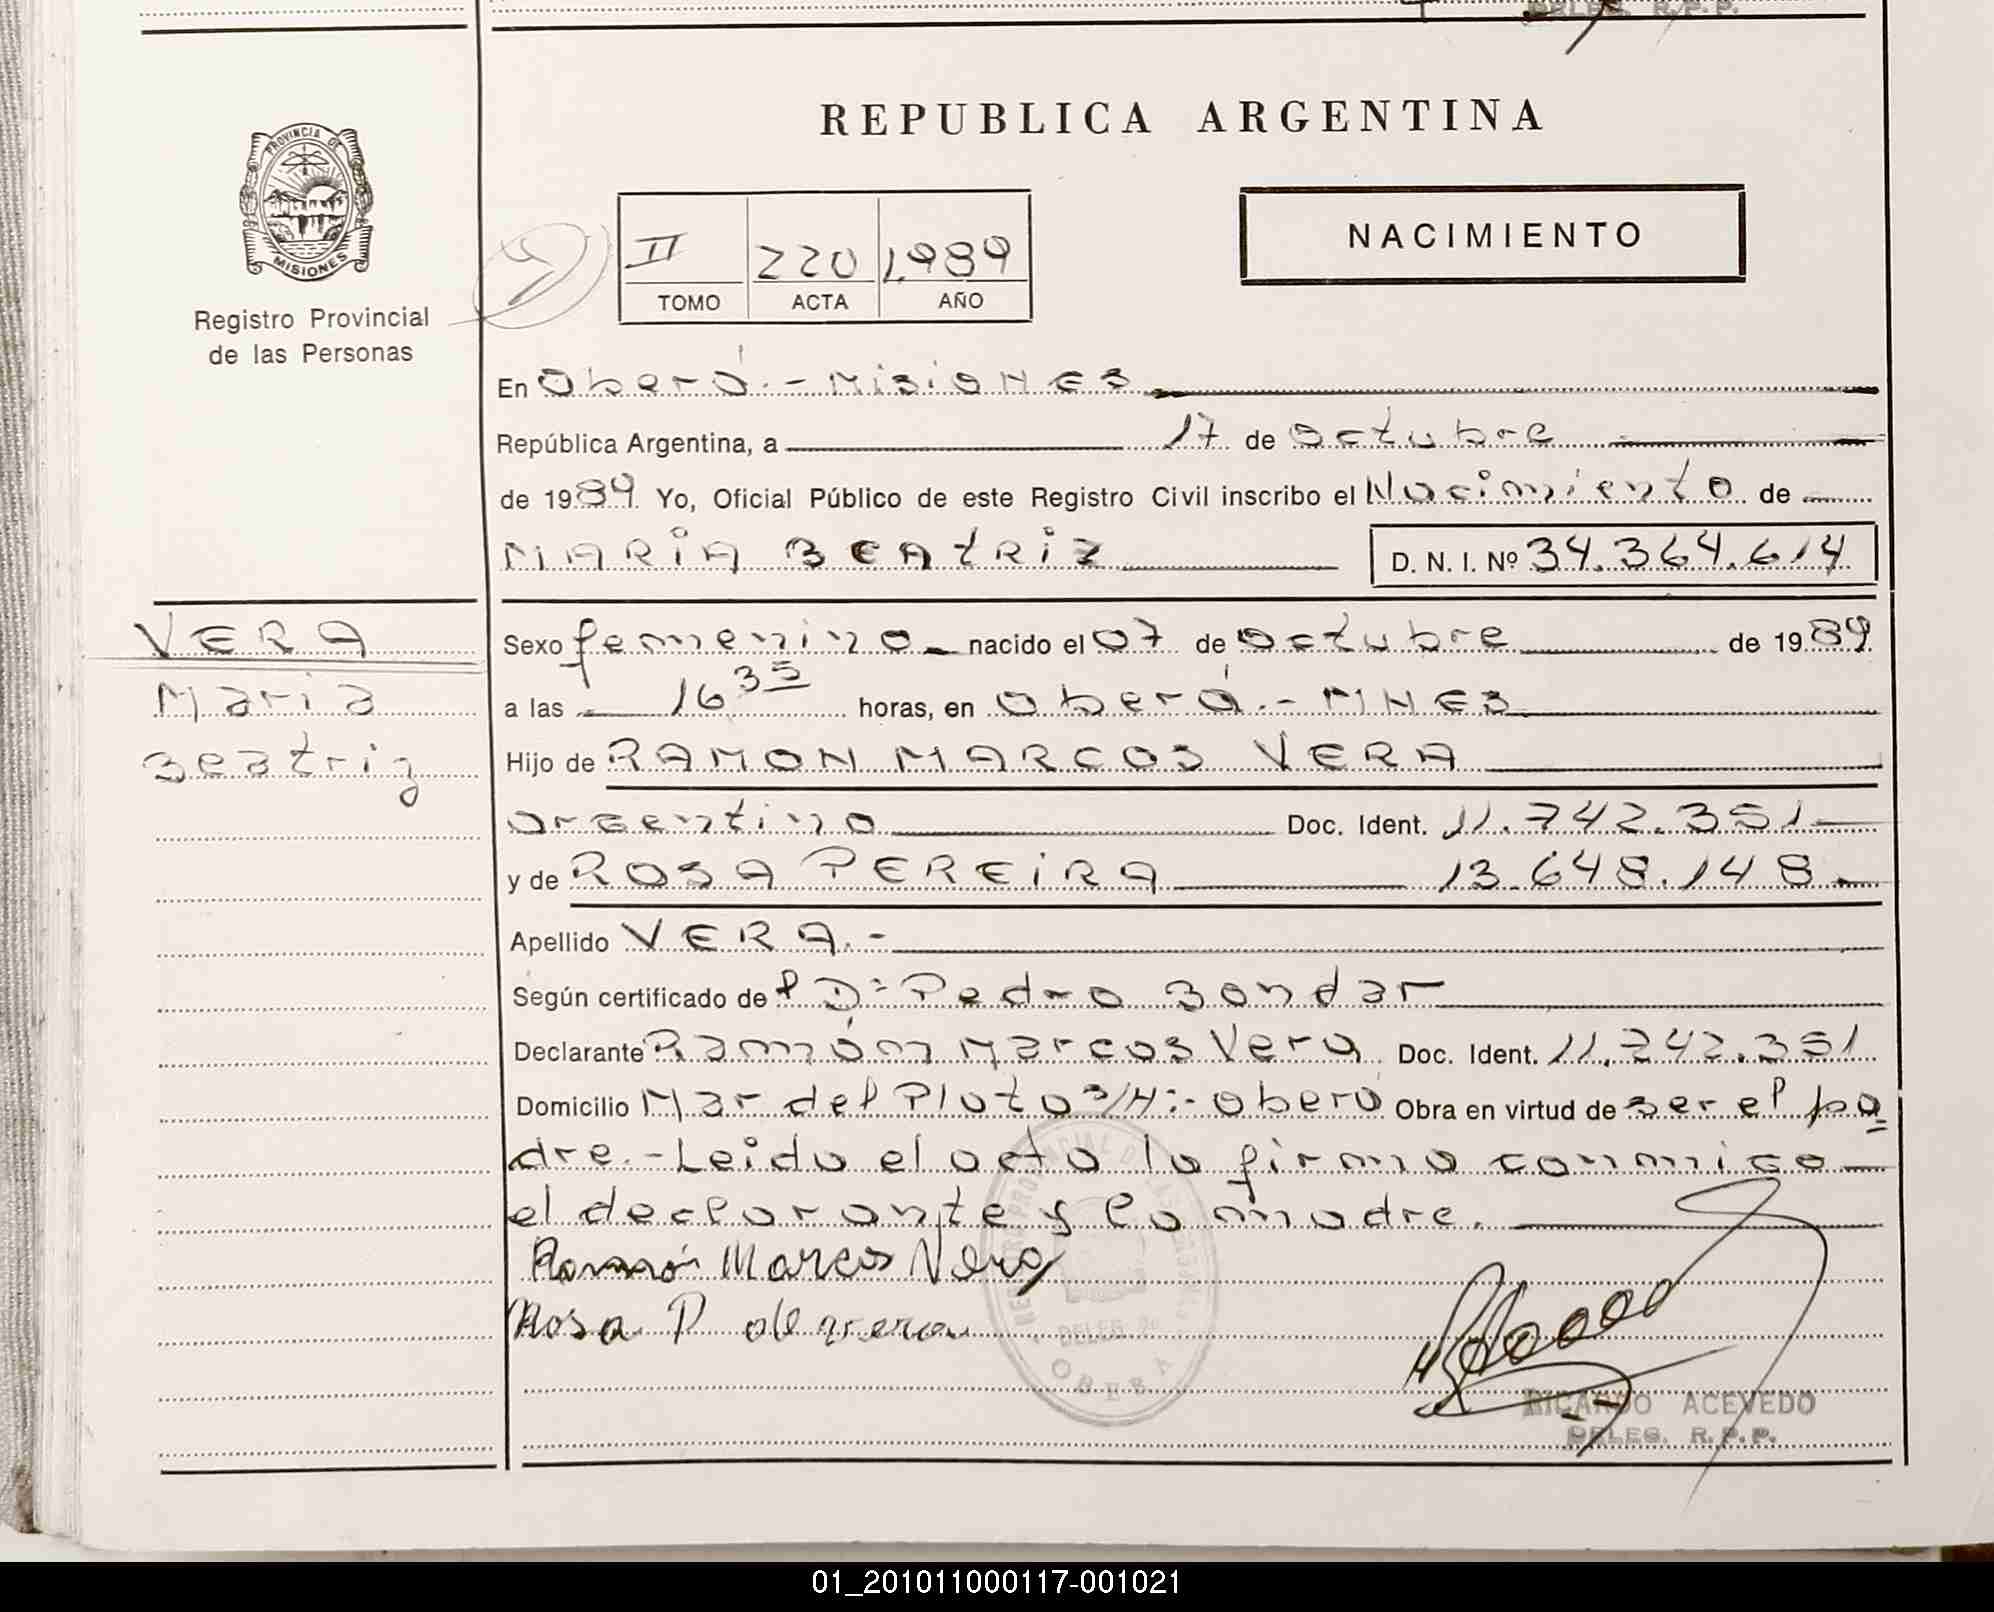 DELEG. R.P.P.
REPUBLICA ARGENTINA
PROVINCIA DE
MISIONES
Registro Provincial
de las Personas
II 220 1.989
TOMO ACTA AÑO
NACIMIENTO
En Oberá.- Misiones
República Argentina, a 17 de octubre
de 1989. Yo, Oficial Público de este Registro Civil inscribo el Nacimiento de
MARIA BEATRIZ D. N. I. Nº 34.364.614
VERA
Maria
Beatriz
Sexo femenino nacido el 07 de octubre de 1989
a las 16 35 horas, en Oberá.- MNES
Hijo de RAMON MARCOS VERA
argentino Doc. Ident. 11.742.351
y de ROSA PEREIRA 13.648.148
Apellido VERA.-
Según certificado de Pedro Bondar
Declarante Ramón Marcos Vera Doc. Ident. 11.742.351
Domicilio Mar del Plata S/N:- Oberá Obra en virtud de ser el pa
dre.- Leida el acta la firma conmigo
el declarante y la madre.
Ramón Marcos Vera
Rosa P de vera
REGISTRO PROVINCIAL DE LAS PERSONAS
DELEG.
OBERA
RICARDO ACEVEDO
DELEG. R.P.P.
01_201011000117-001021